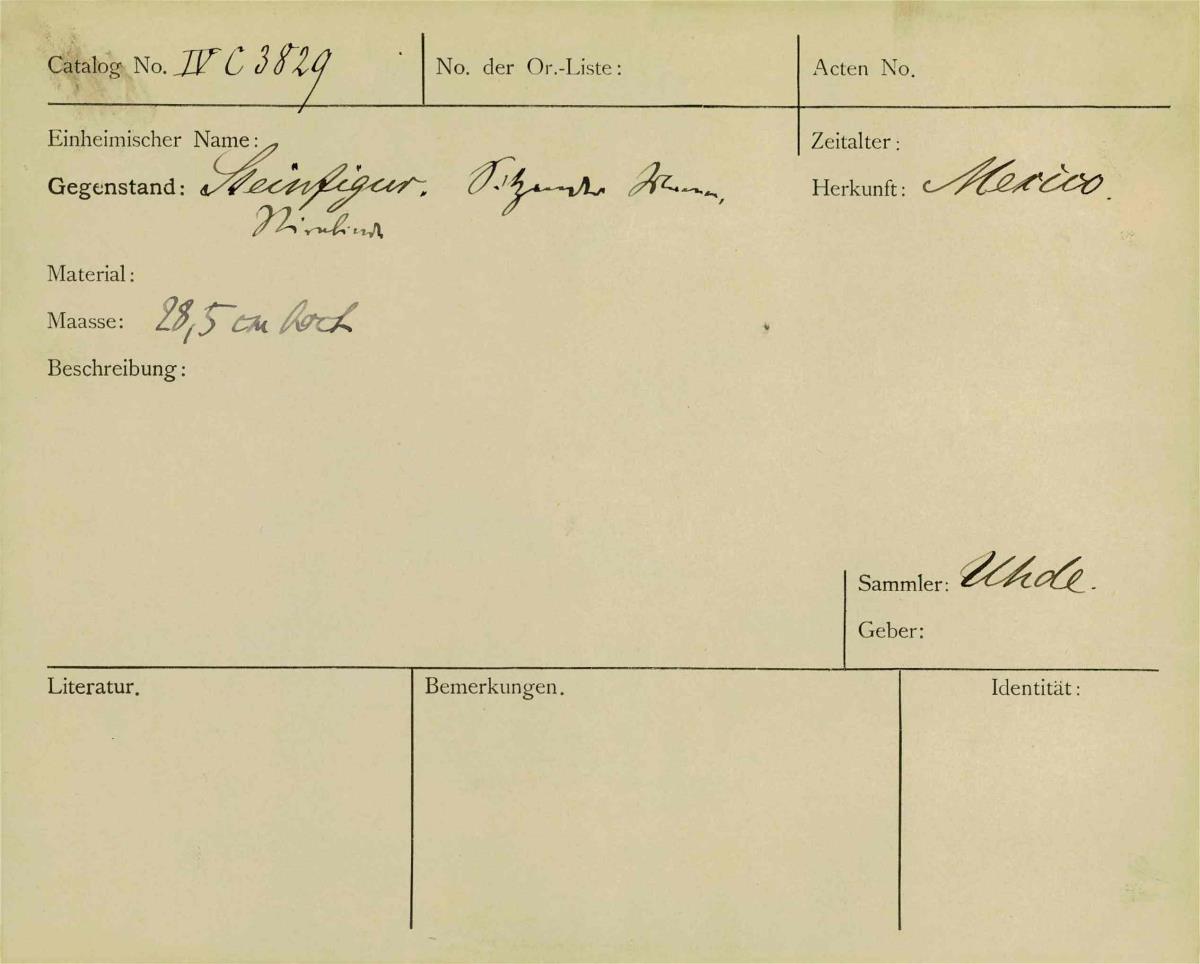 Catalog No. IV C 3829
No. der Or.-Liste:
Acten No.
Einheimischer Name:
Zeitalter:
Gegenstand: Steinfigur. Sitzender Mann,
Stirnbinde
Herkunft: Mexico.
Material:
Maasse: 28,5 cm hoch
Beschreibung:
Sammler: Uhde.
Geber:
Literatur.
Bemerkungen.
Identität: